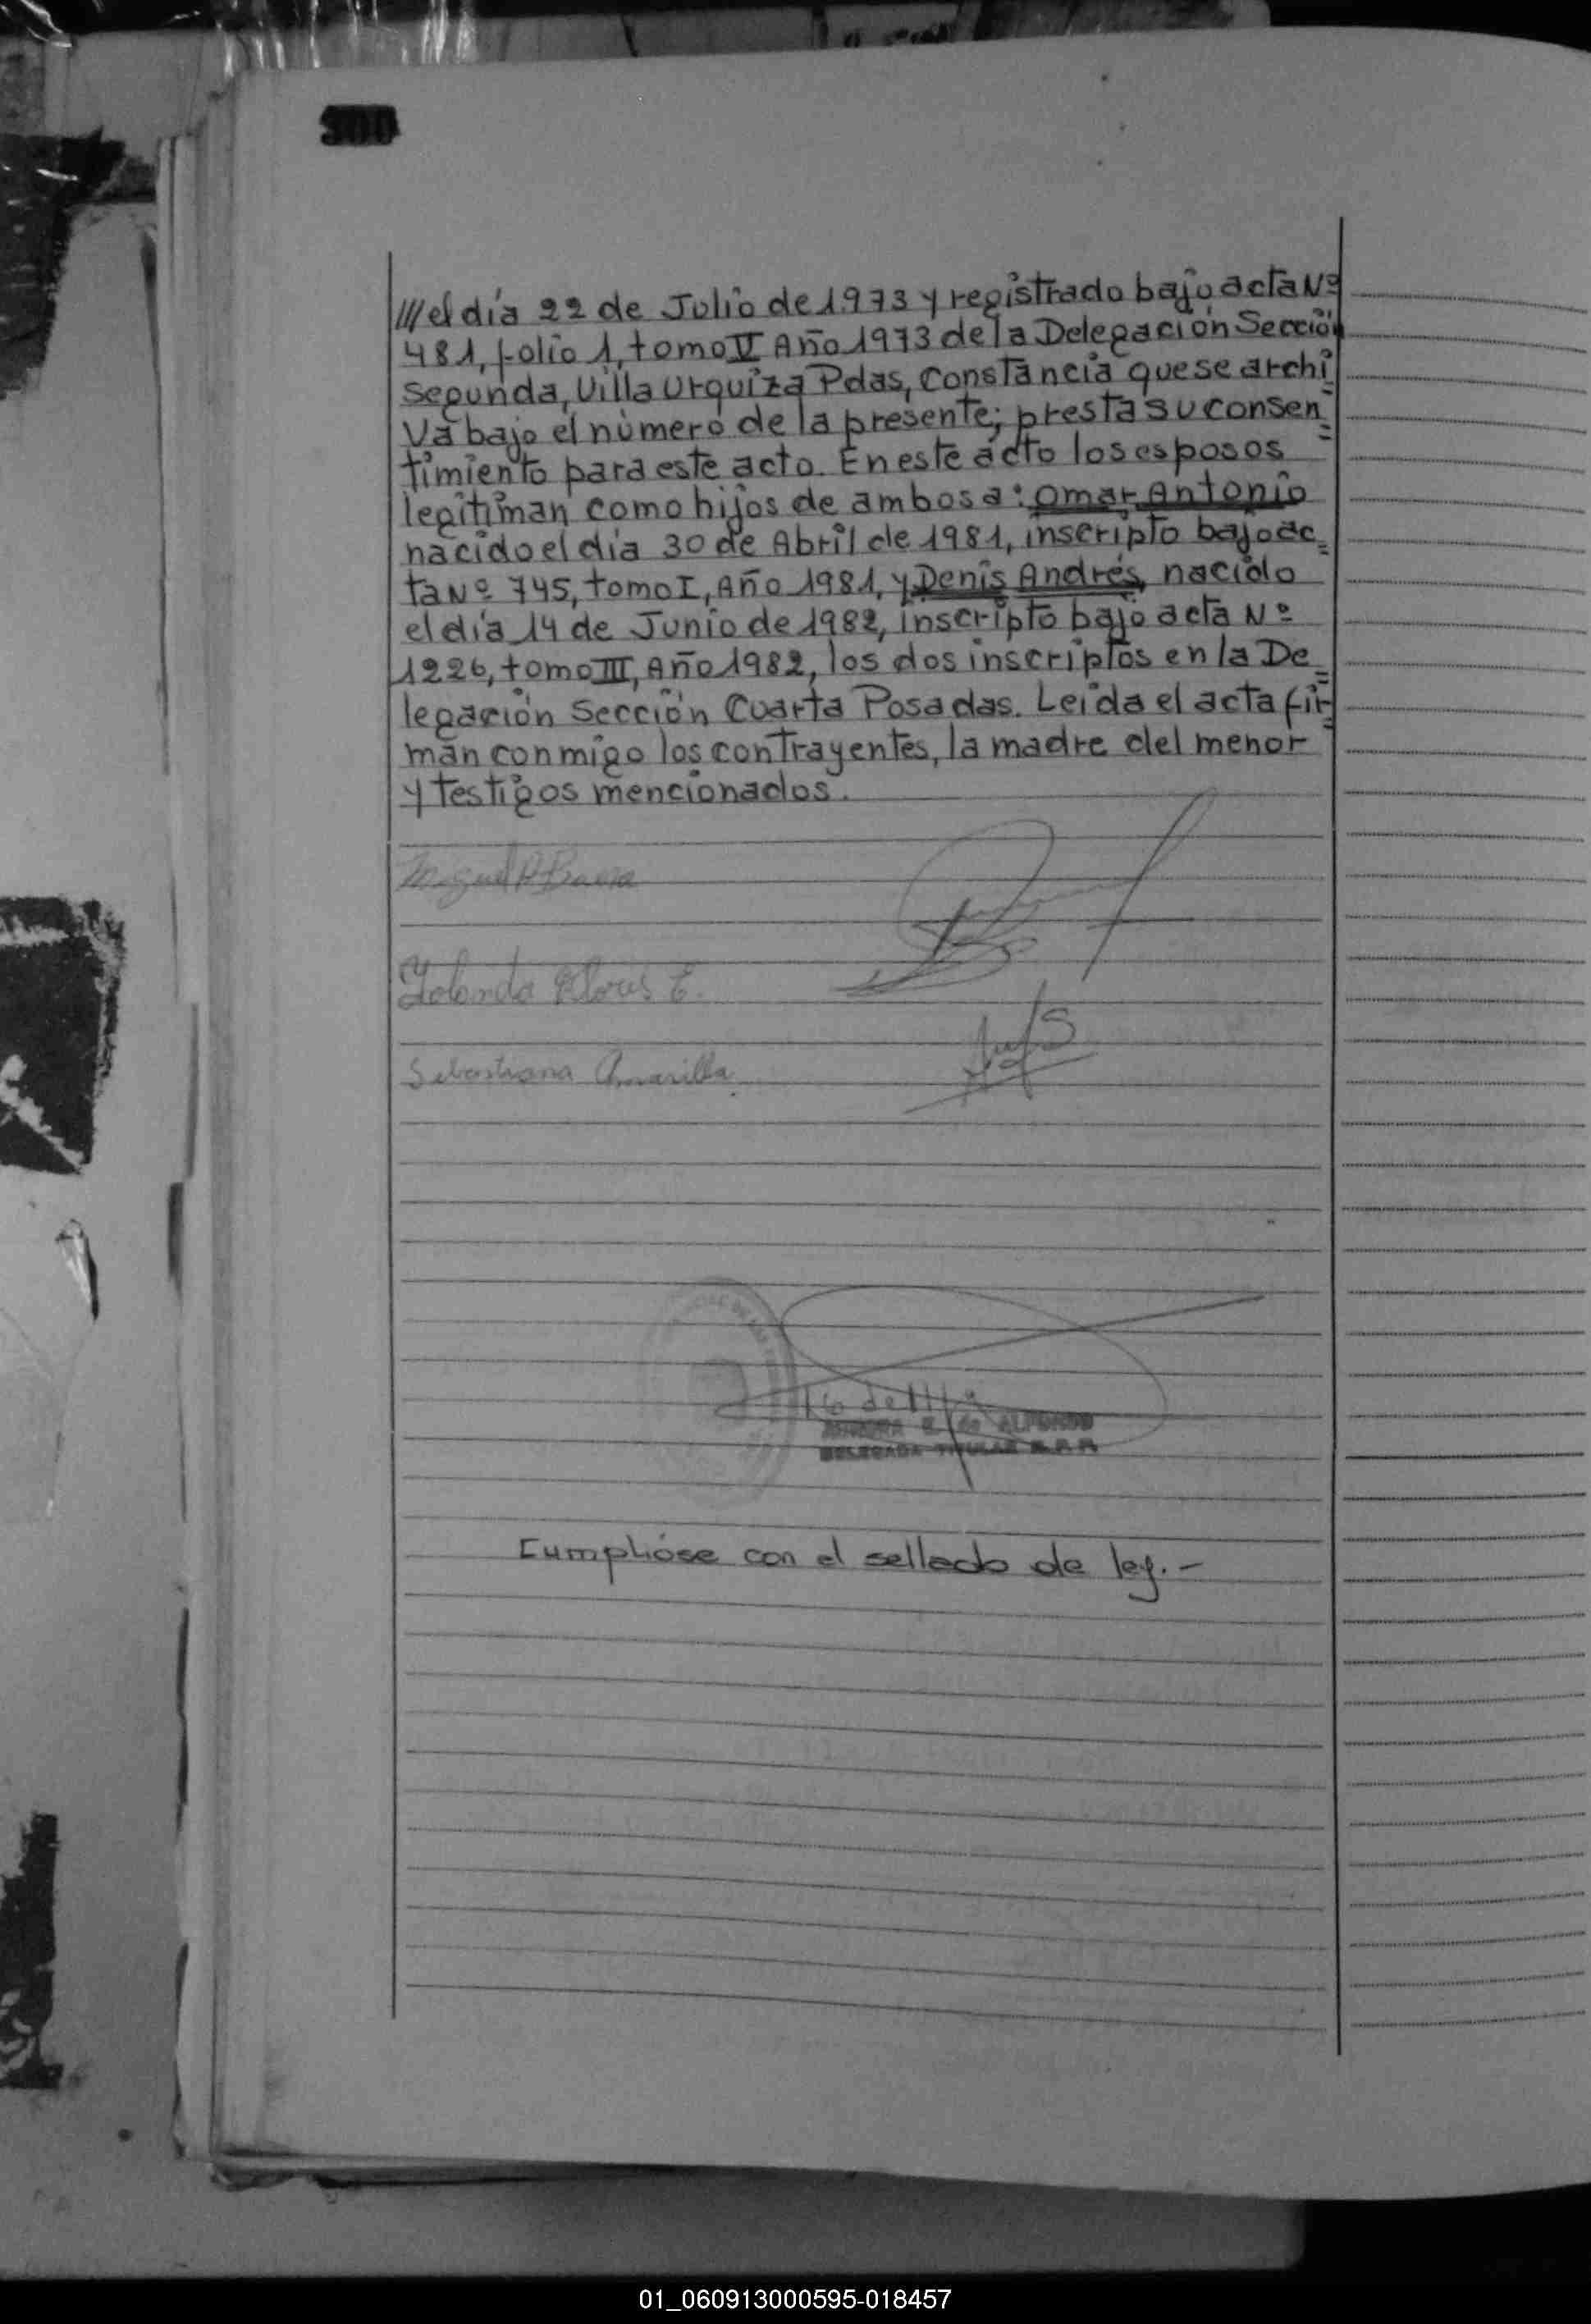 300
/// el día 22 de Julio de 1.973 y registrado bajo acta Nº
481, folio 1, tomo V Año 1973 de la Delegación Sección
Segunda, Villa Urquiza Pdas, Constancia que se archi=
va bajo el número de la presente; presta su consen=
timiento para este acto. En este acto los esposos
legitiman como hijos de ambos a: Omar Antonio
nacido el día 30 de Abril de 1981, inscripto bajo ac=
ta Nº 745, tomo I, Año 1981, y Denis Andrés, nacido
el día 14 de Junio de 1982, inscripto bajo acta Nº
1226, tomo III, Año 1982, los dos inscriptos en la De=
legación Sección Cuarta Posadas. Leída el acta fir=
man conmigo los contrayentes, la madre del menor
y testigos mencionados.
Miguel A
Yolanda E.
Sebastiana Amarilla
E. de ALFONSO
DELEGADA TITULAR R.P.P.
Cumplióse con el sellado de ley.-
01_060913000595-018457